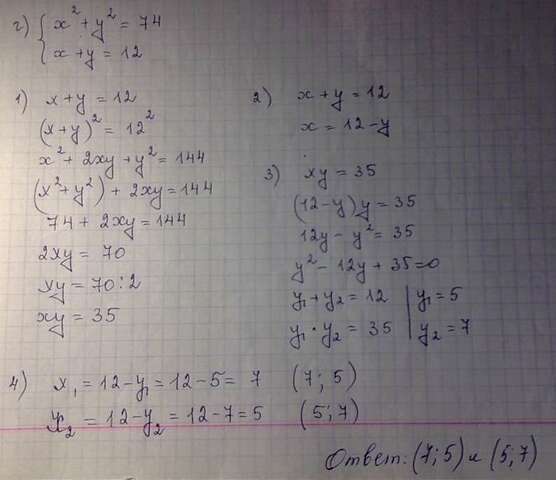 г) { x² + y² = 74
x + y = 12
1) x + y = 12
(x + y)² = 12²
x² + 2xy + y² = 144
(x² + y²) + 2xy = 144
74 + 2xy = 144
2xy = 70
xy = 70 : 2
xy = 35
2) x + y = 12
x = 12 - y
3) xy = 35
(12 - y) y = 35
12y - y² = 35
y² - 12y + 35 = 0
y₁ + y₂ = 12 | y₁ = 5
y₁ · y₂ = 35 | y₂ = 7
4) x₁ = 12 - y₁ = 12 - 5 = 7 (7; 5)
x₂ = 12 - y₂ = 12 - 7 = 5 (5; 7)
Ответ: (7; 5) и (5; 7)